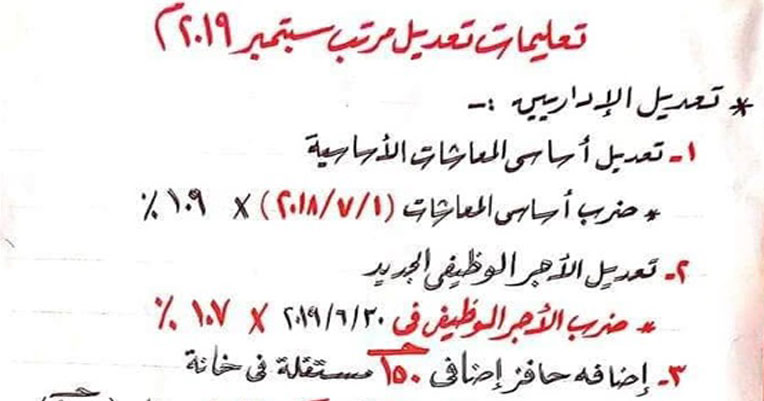 تعليمات تعديل مرتب سبتمبر ٢٠١٩م
* تعديل الإداريين :-
١- تعديل أساسى المعاشات الأساسية
* ضرب أساسى المعاشات (٢٠١٨/٧/١) × ١٠٩ ٪
٢- تعديل الأجر الوظيفى الجديد
* ضرب الأجر الوظيفى فى ٢٠١٩/٦/٣٠ × ١٠٧ ٪
٣- إضافه حافز إضافى ١٥٠ مستقلة فى خانة